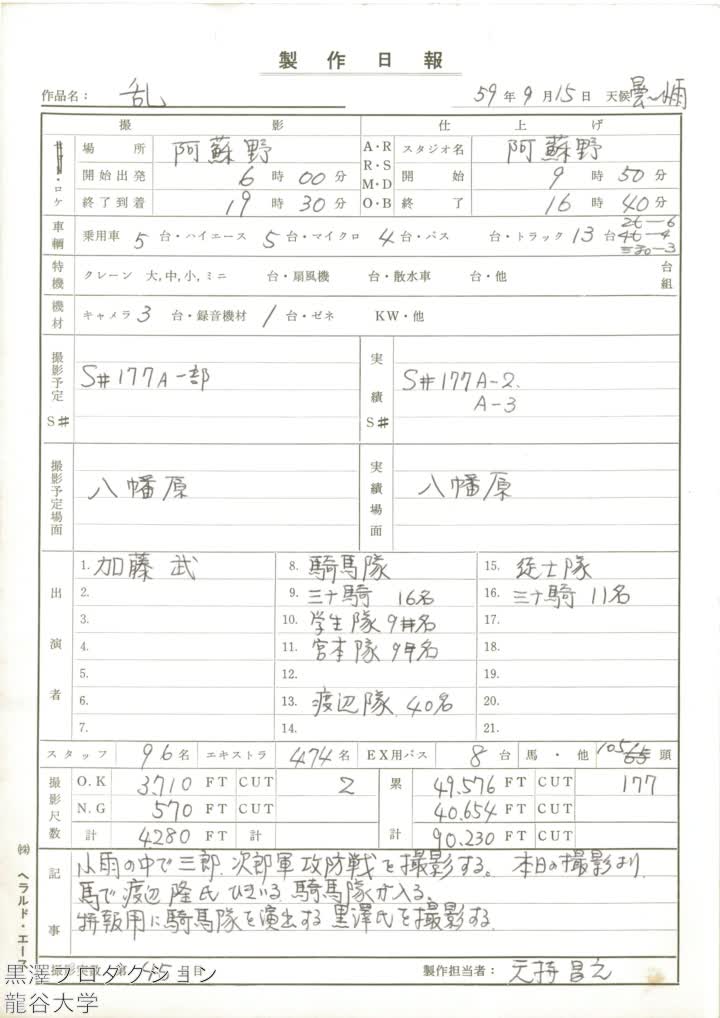 製作日報
作品名： 乱 59年9月15日 天候 曇〜雨
撮影 仕上げ
・ロケ 場所 阿蘇野 A・R R・S M・D O・B スタジオ名 阿蘇野
開始出発 6時00分 開始 9時50分
終了到着 19時30分 終了 16時40分
車輌 乗用車 5台・ハイエース 5台・マイクロ 4台・バス 台・トラック 13台 2t－6 4t－4
特機 クレーン 大,中,小,ミニ 台・扇風機 台・散水車 台・他 台組
機材 キャメラ 3台・録音機材 1台・ゼネ KW・他
撮影予定S# S#177A一部 実績S# S#177A-2.
A-3
撮影予定場面 八幡原 実績場面 八幡原
出演者
1. 加藤武 8. 騎馬隊 15. 徒士隊
2. 9. 三十騎 16名 16. 三十騎 11名
3. 10. 学生隊 9名 17.
4. 11. 宮本隊 9名 18.
5. 12. 19.
6. 13. 渡辺隊 40名 20.
7. 14. 21.
スタッフ 96名 エキストラ 474名 EX用バス 8台 馬・他 105 頭
撮影尺数 O.K 3,710 FT CUT 2 累計 49.576 FT CUT 177
N.G 570 FT 40.654 FT
計 4280 FT 計 90.230 FT CUT
記事
小雨の中で三郎、次郎軍攻防戦を撮影する。本日の撮影より
馬で渡辺隆氏ひきいる騎馬隊が入る。
特報用に騎馬隊を演出する黒澤氏を撮影する
撮影実数 第 日目 製作担当者： 元持昌之
㈱ ヘラルド・エース
黒澤プロダクション
龍谷大学